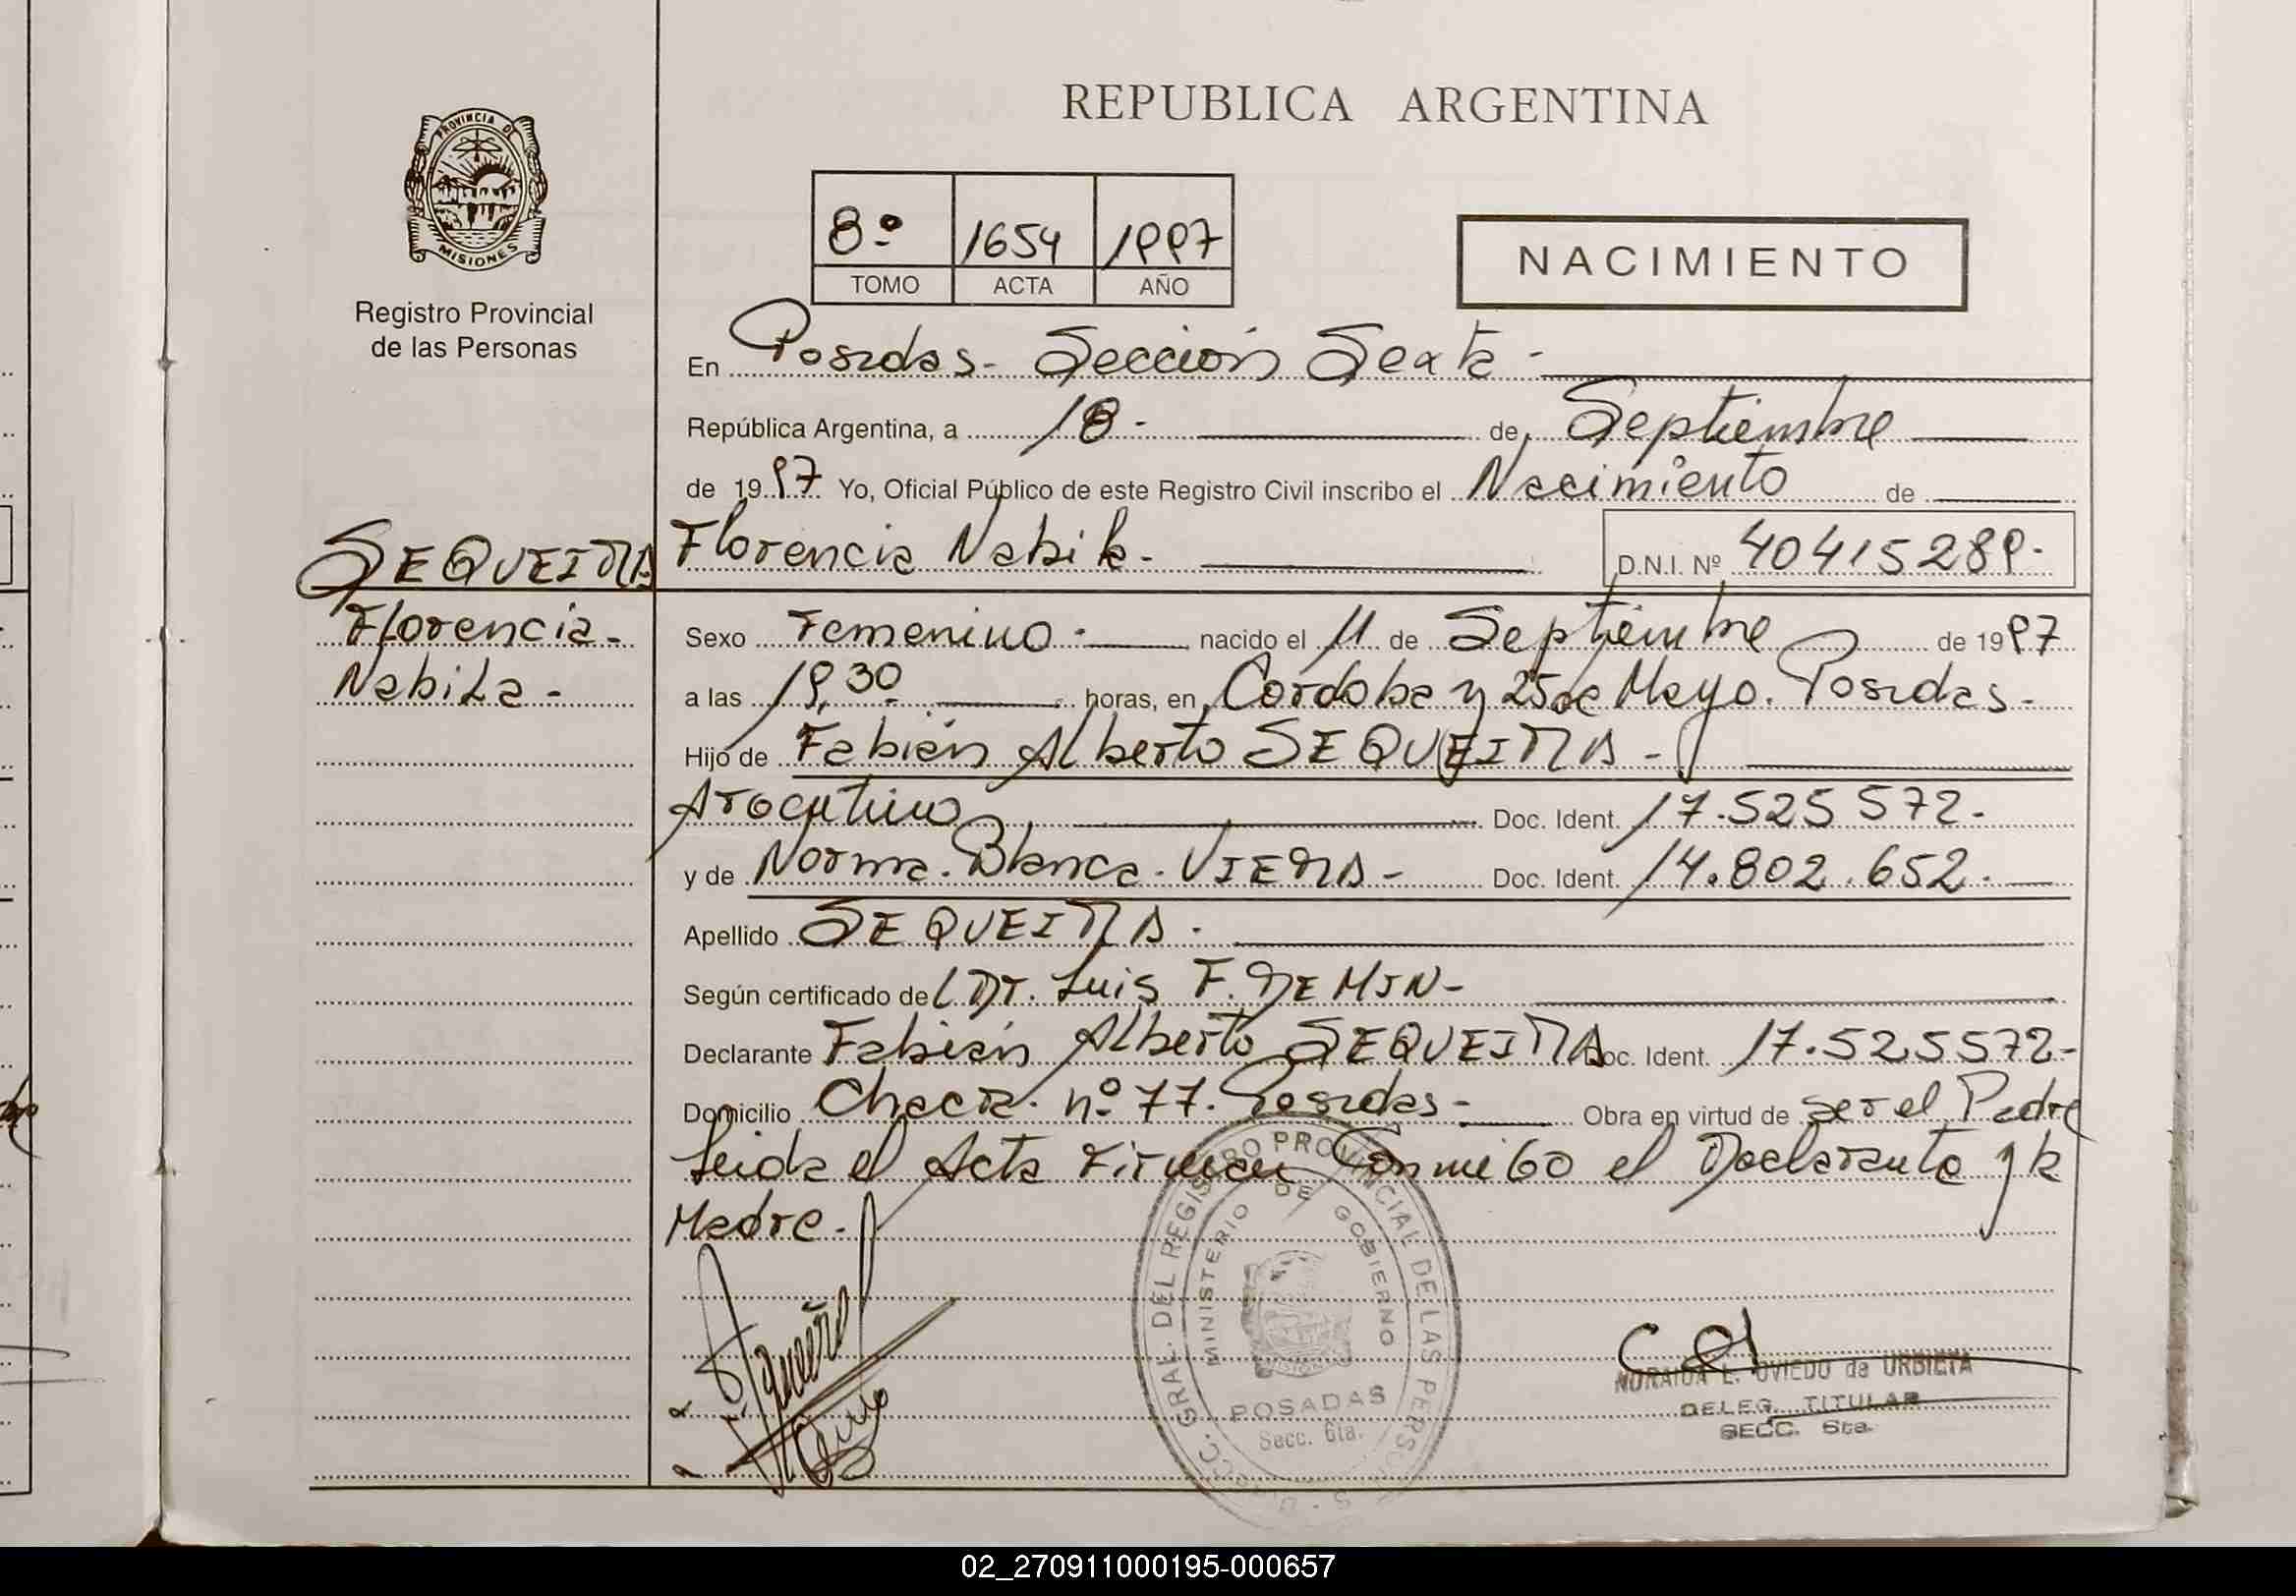 PROVINCIA DE
MISIONES
Registro Provincial
de las Personas
REPUBLICA ARGENTINA
8º 1654 1997
TOMO ACTA AÑO
NACIMIENTO
En Posadas - Sección Sexta -
República Argentina, a 18 - de Septiembre
de 1997 Yo, Oficial Público de este Registro Civil inscribo el Nacimiento de
SEQUEIRA Florencia Nabila - D.N.I. Nº 40415289-
Florencia - Sexo Femenino - nacido el 11 de Septiembre de 1997
Nabila - a las 19,30 horas, en Córdoba y 25 de Mayo. Posadas -
Hijo de Fabián Alberto SEQUEIRA -
Argentino Doc. Ident. 17.525 572 -
y de Norma. Blanca. VIERA - Doc. Ident. 14.802.652.
Apellido SEQUEIRA -
Según certificado del Dr. Luis F. DEMIN -
Declarante Fabián Alberto SEQUEIRA Doc. Ident. 17.525572 -
Domicilio Chacra. nº 77. Posadas - Obra en virtud de ser el Padre
Leida el Acta Firman Conmigo el Declarante y la
Madre -
DEL REGISTRO PROVINCIAL DE LAS PERSONAS
MINISTERIO DE GOBIERNO
POSADAS
Secc. 6ta.
NORAIDA L. OVIEDO de URBIETA
DELEG. TITULAR
SECC. 6ta.
02_270911000195-000657